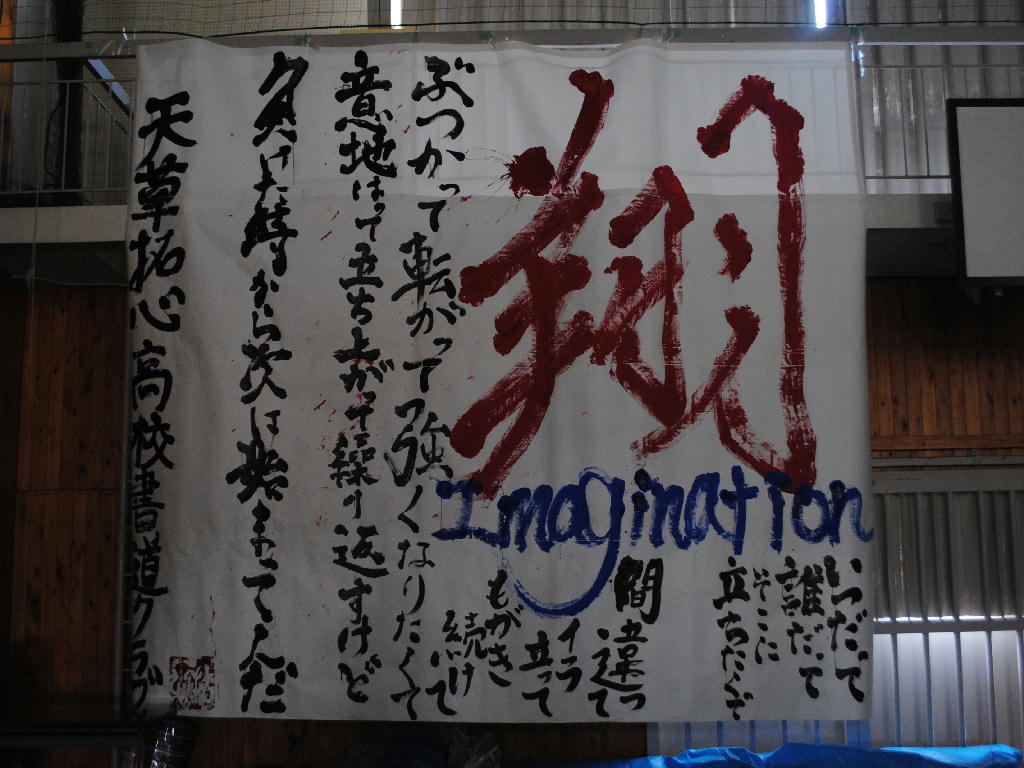 翔
Imagination
いつだって
誰だって
そこに
立ちたくて
間違って
イラ
立って
もがき
続けて
ぶつかって転がって強くなりたくて
意地はって立ち上がって繰り返すけど
負けた時から次は始まってんだ
天草拓心高校書道クラブ